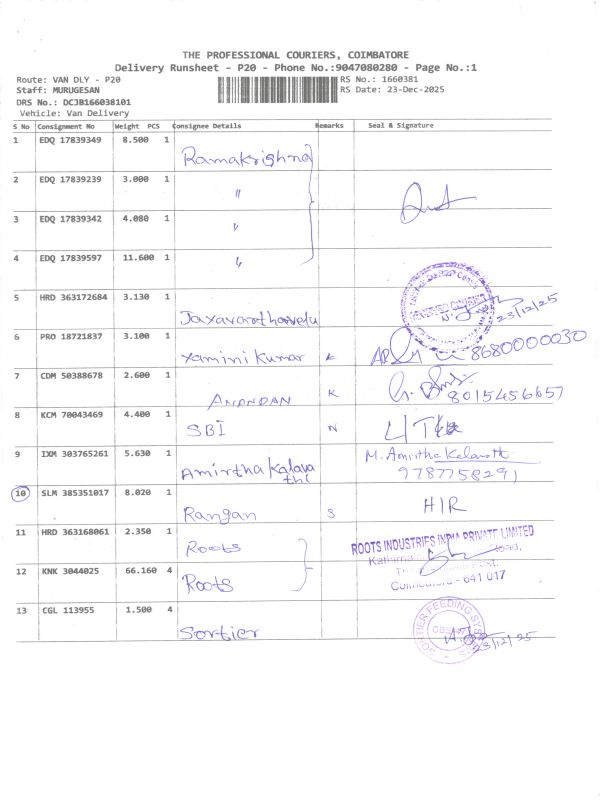 THE PROFESSIONAL COURIERS, COIMBATORE
Delivery Runsheet - P20 - Phone No.:9047080280 - Page No.:1
Route: VAN DLY - P20 RS No.: 1660381
Staff: MURUGESAN RS Date: 23-Dec-2025
DRS No.: DCJB166038101
Vehicle: Van Delivery
S No Consignment No Weight PCS Consignee Details Remarks Seal & Signature
1 EDQ 17839349 8.500 1 Ramakrishna
2 EDQ 17839239 3.000 1 "
3 EDQ 17839342 4.080 1 "
4 EDQ 17839597 11.600 1 "
5 HRD 363172684 3.130 1 Jayavarathavelu 23/12/25
6 PRO 18721837 3.100 1 Yamini Kumar K 8680000030
7 CDM 50388678 2.600 1 ANANDAN K 8015456657
8 KCM 70043469 4.400 1 SBI N
9 IXM 303765261 5.630 1 Amirtha Kalava M. Amirtha Kalavathi
thi 9787758291
10 SLM 385351017 8.020 1 Rangan S HIR
11 HRD 363168061 2.350 1 Roots ROOTS INDUSTRIES INDIA PRIVATE LIMITED
Road,
12 KNK 3044025 66.160 4 Roots Post,
Coimbatore - 641 017
13 CGL 113955 1.500 4 Sortier SORTIER FEEDING 23/12/25